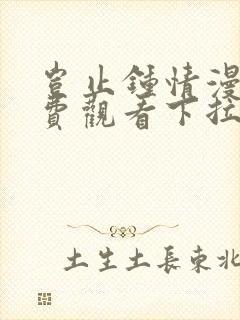 豈止鍾情漫
費觀看下拉
土生土長東北